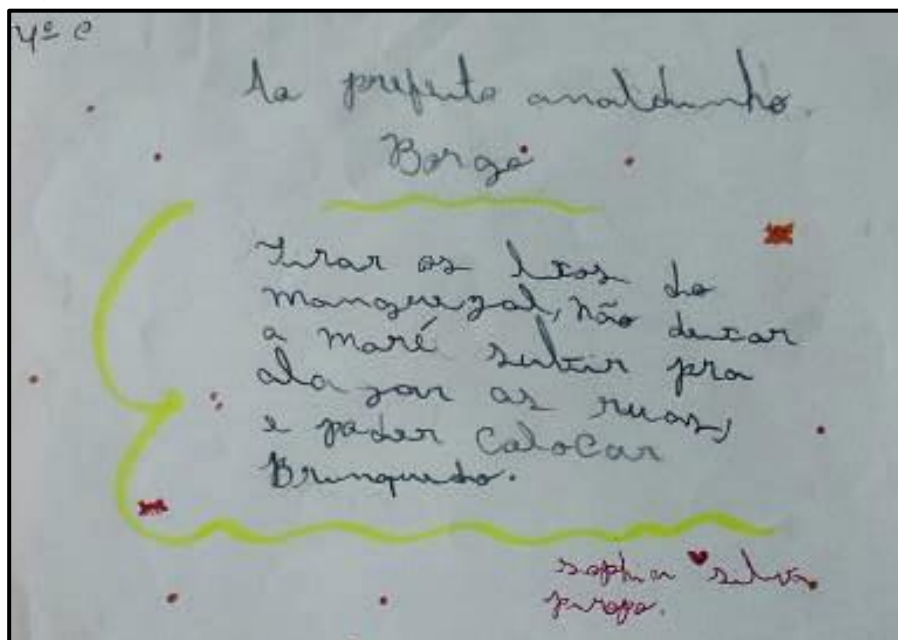 4º C
Ao prefeito arnaldinho.
Borgo
Tirar os lixos do
manguezal, não deixar
a maré subir pra
ala gar as ruas,
e poder colocar
Brinquedo.
sophia silva